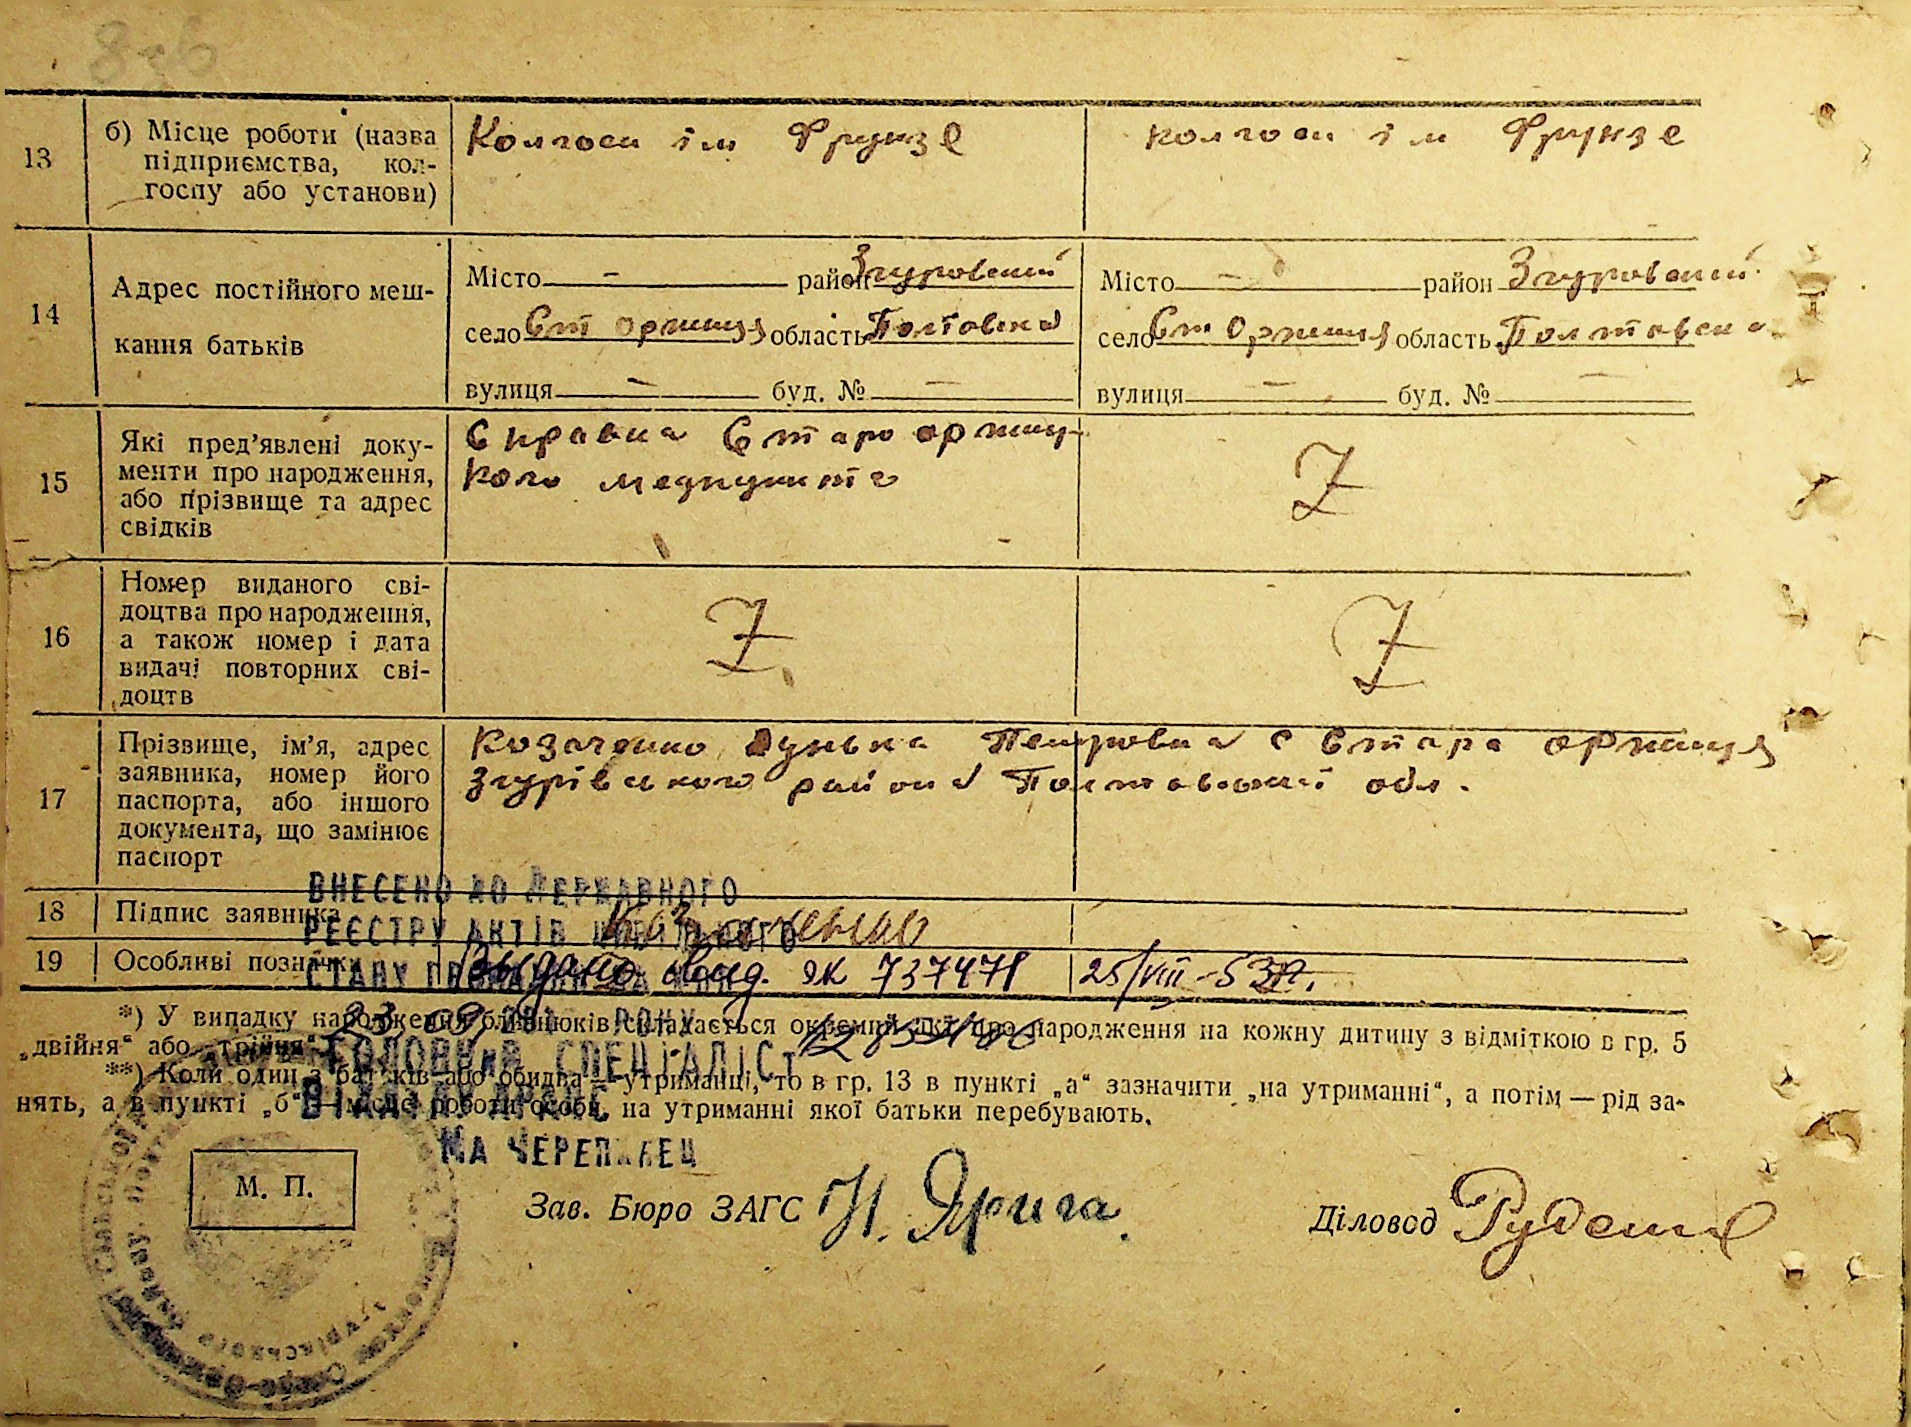 13
б) Місце роботи (назва
підприємства, кол-
госпу або установи)
Колгосп ім Фрунзе
колгосп ім Фрунзе
14
Адрес постійного меш-
кання батьків
Місто — район Згуровский
село Ст Оржиця область Полтовска
вулиця — буд. № —
Місто — район Згуровский
село Ст Оржиця область Полтавска
вулиця — буд. № —
15
Які пред'явлені доку-
менти про народження,
або прізвище та адрес
свідків
Справка Старооржиц-
кого медпункта
Z
16
Номер виданого сві-
доцтва про народження,
а також номер і дата
видачі повторних сві-
доцтв
Z
Z
17
Прізвище, ім'я, адрес
заявника, номер його
паспорта, або іншого
документа, що замінює
паспорт
Козаченко Дунька Петровна с Стара Оржиця
Згурівського района Полтавской обл.
18
Підпис заявника
19
Особливі позначки
Выдано свид. ЯК 737471 25/VIII-53р.
ВНЕСЕНО ДО ДЕРЖАВНОГО
РЕЄСТРУ АКТІВ ЦИВІЛЬНОГО
СТАНУ ГРОМАДЯН ЗА
23 09 РОКУ
ГОЛОВНИЙ СПЕЦІАЛІСТ
ВІДДІЛУ ДРАЦС
*) У випадку народження близнюків складається окремий акт про народження на кожну дитину з відміткою в гр. 5
„двійня“ або „трійня“.
**) Коли один з батьків або обидва — утриманці, то в гр. 13 в пункті „а“ зазначити „на утриманні“, а потім — рід за-
нять, а в пункті „б“ — місце роботи особи, на утриманні якої батьки перебувають.
М. П.
Зав. Бюро ЗАГС Н. Ярига.
Діловод